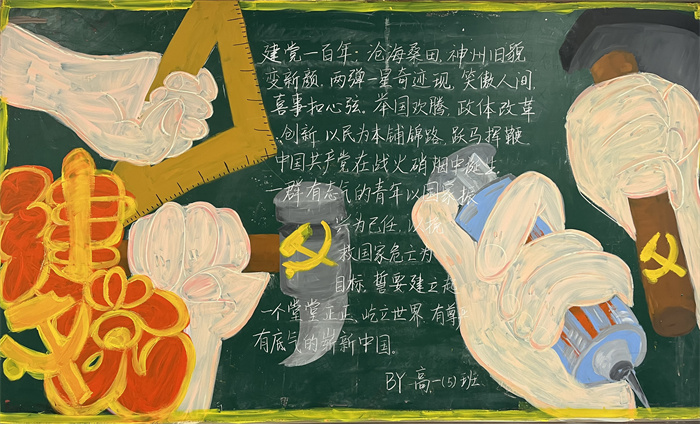 建党
建党一百年：沧海桑田，神州旧貌
变新颜，两弹一星奇迹现，笑傲人间，
喜事扣心弦。举国欢腾，政体改革
创新，以民为本铺锦路，跃马挥鞭
中国共产党在战火硝烟中诞生
一群有志气的青年以国家振
兴为己任，以挽
救国家危亡为
目标，誓要建立起
一个堂堂正正，屹立世界，有
有底气的崭新中国。
BY 高一(5)班